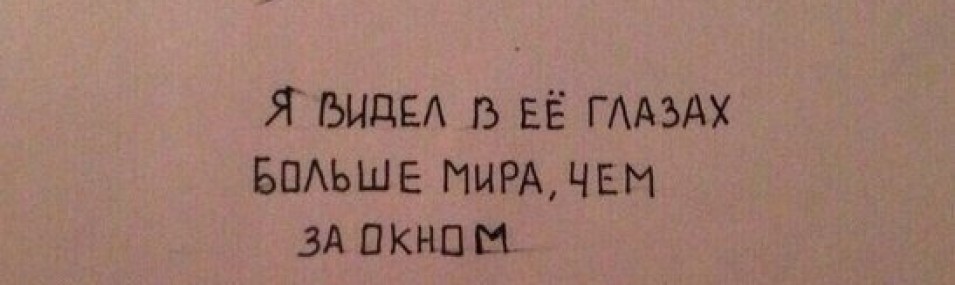 Я ВИДЕЛ В ЕЁ ГЛАЗАХ
БОЛЬШЕ МИРА, ЧЕМ
ЗА ОКНОМ